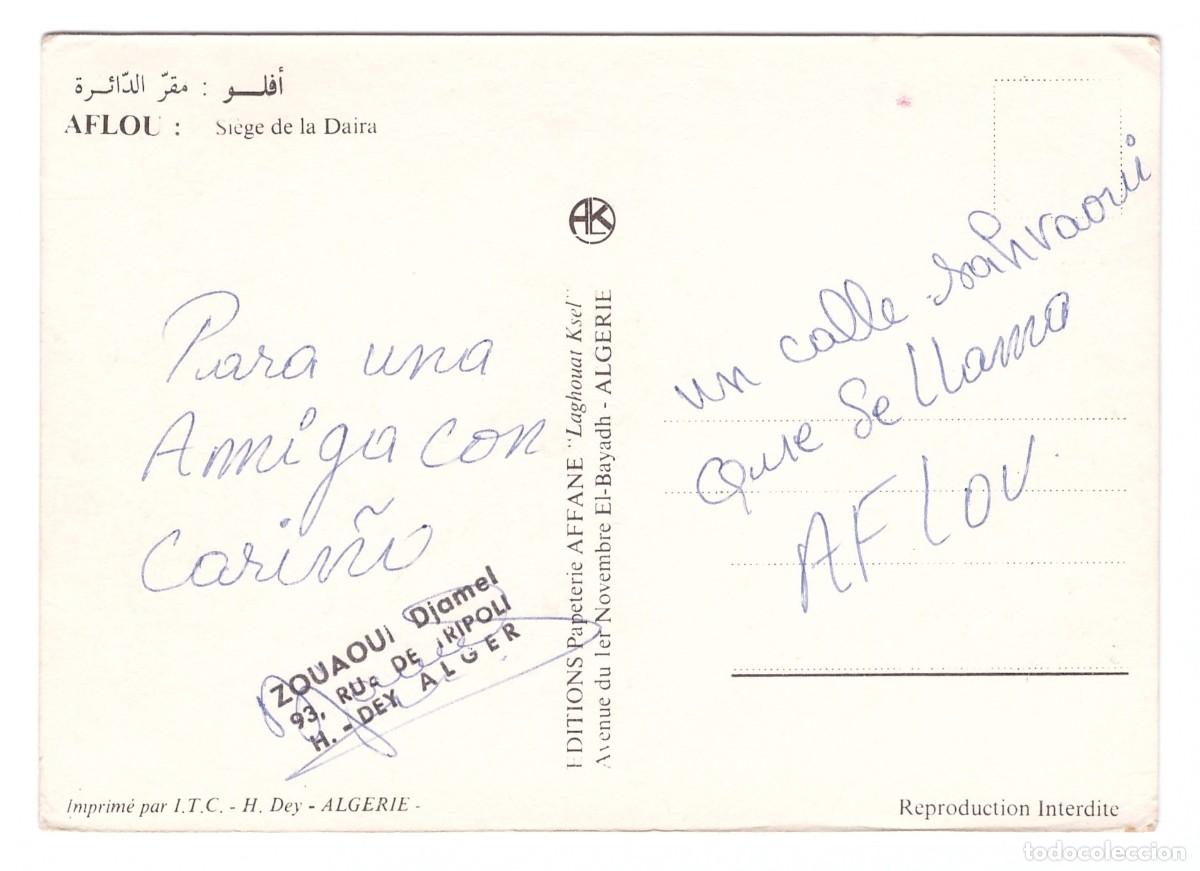 أفلـــو : مقرّ الدّائــرة
AFLOU : Siège de la Daira
Para una
Amiga con
cariño
ZOUAOUI Djamel
93, RUE DE TRIPOLI
H. - DEY ALGER
Imprimé par I.T.C. - H. Dey - ALGERIE -
ALK
EDITIONS Papeterie AFFANE "Laghouat Ksel"
Avenue du 1er Novembre El-Bayadh - ALGERIE
un calle sahraoui
que se llama
AFLOU.
Reproduction Interdite
todocoleccion